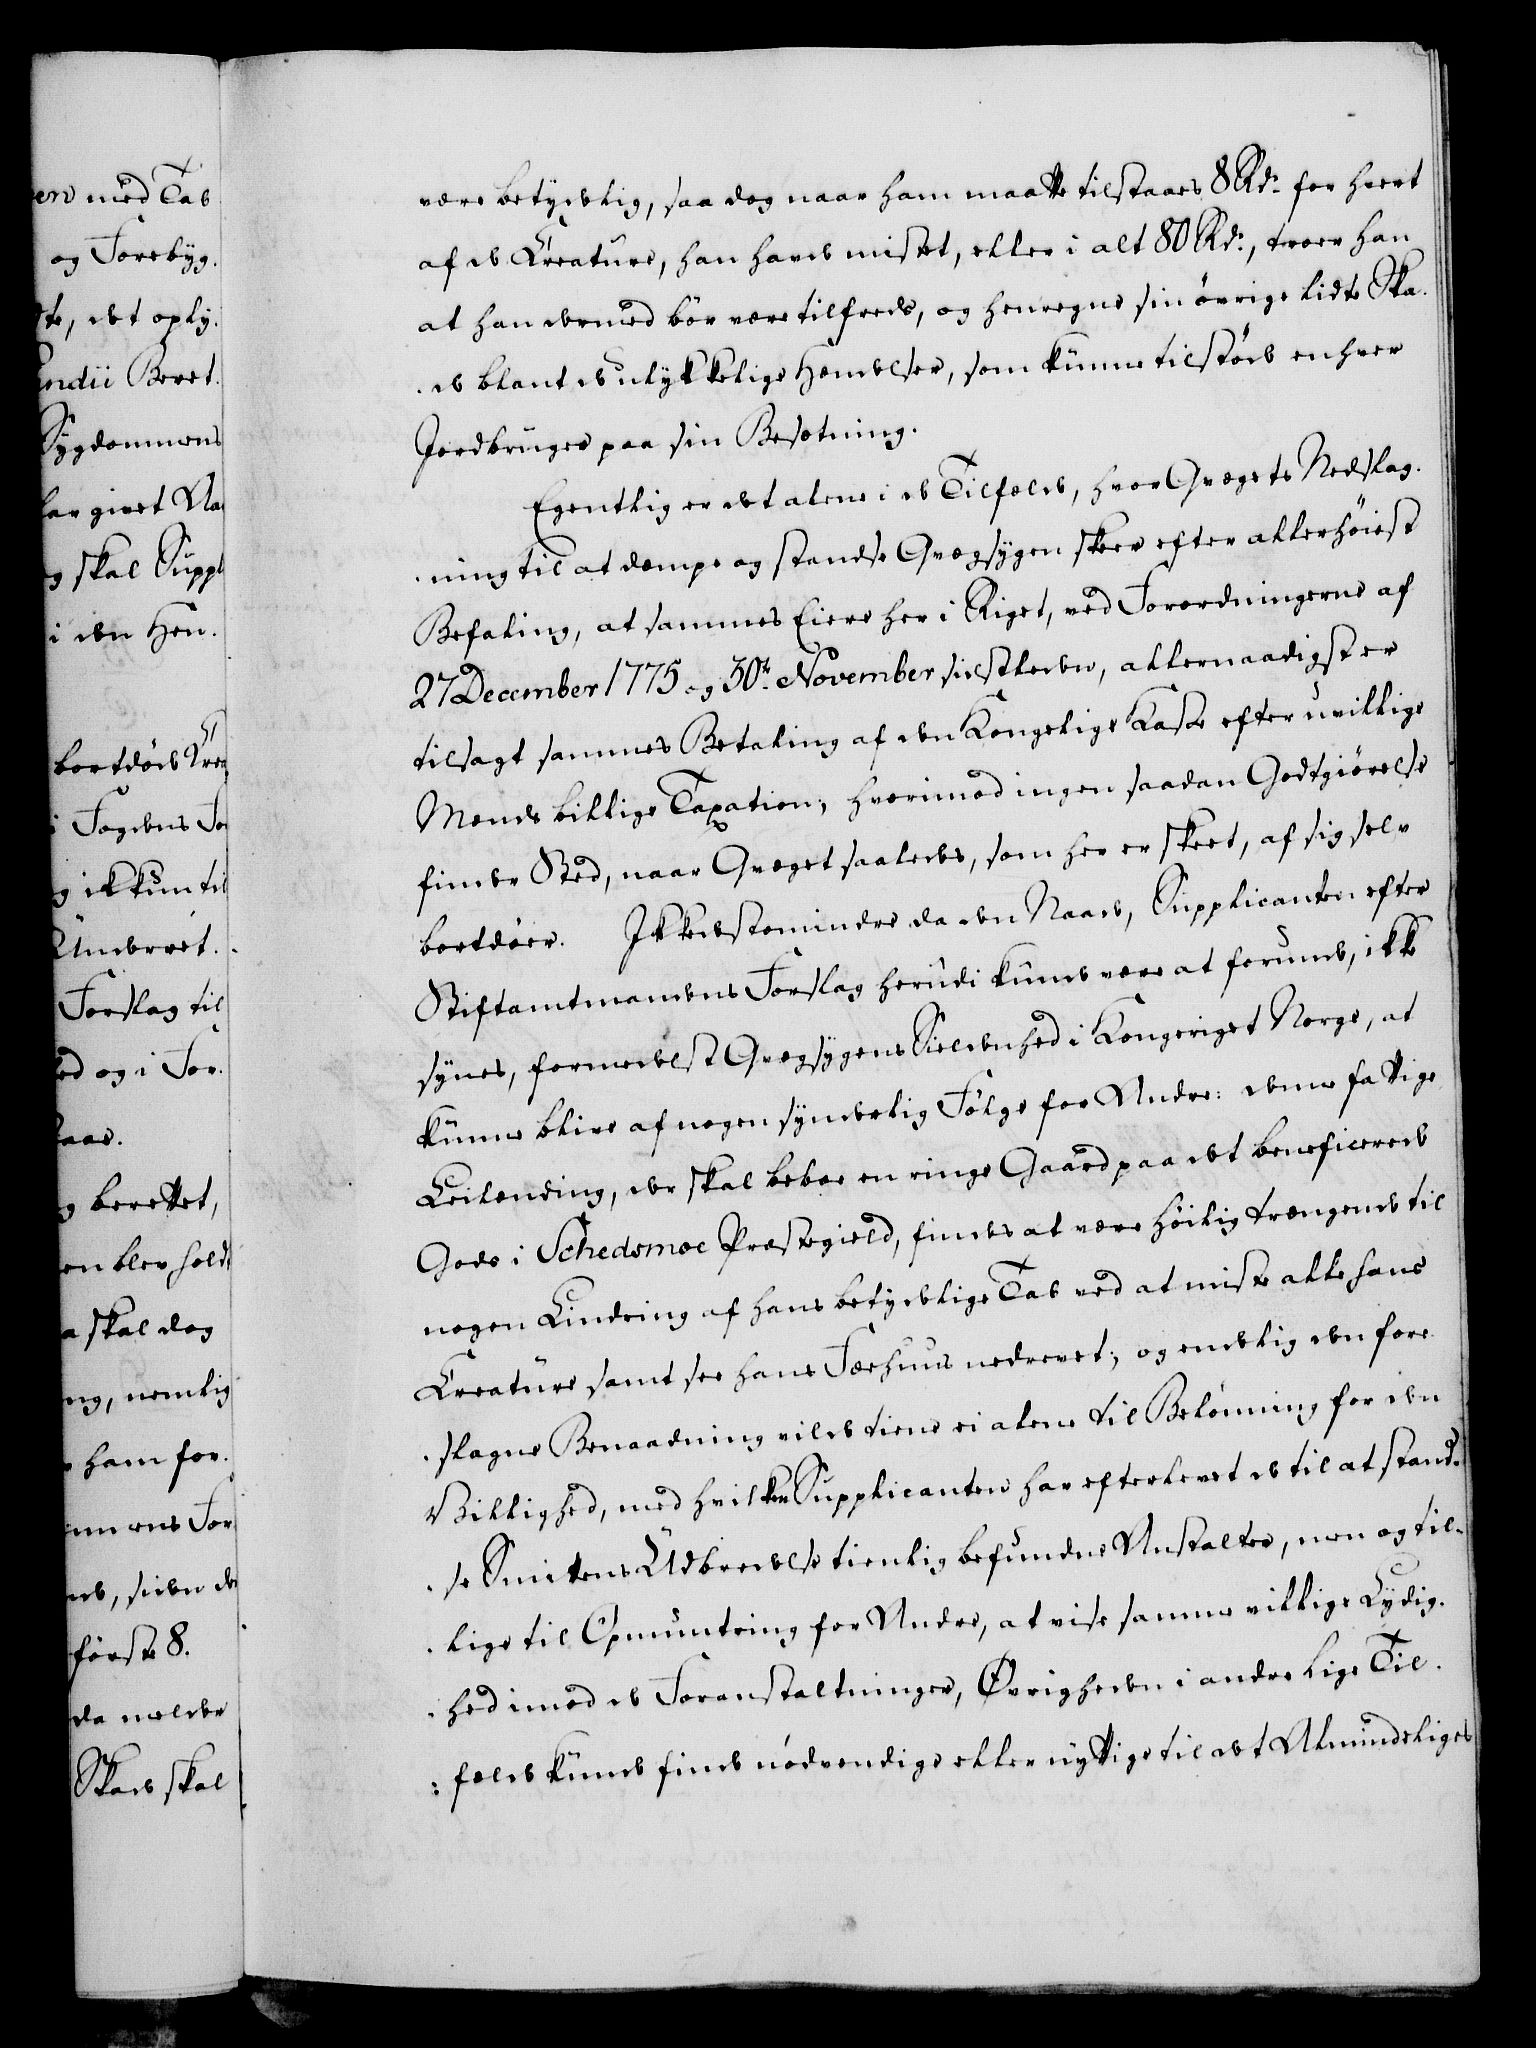 erv med Tab
og Forebyg.
te, det oply.
endii Beret.
Sygdommens
har givet Na
g skal Suppl
i den Hen.
bortdöde Crea
i Fogdens Fo
g ikkun til
Underret.
Forslag til
ed og i For.
aar.
g berettet,
en blev hold
a skal dog
ng, nemlig
ham for.
mmens For
nde, siden de
förste 8.
da melder
Skade skal
være betydelig, saa dog naar ham maatte tilstaaes 8 Rdr. for hvert
af de Creature, han havde mistet, eller i alt 80 Rdr., troer han
at han dermed bör være tilfreds, og henregne sin övrige lidte Ska.
de blant de ulykkelige Hændelser, som kunne tilstöde enhver
Jordbruger paa sin Besætning.
Egentlig er det alene i de Tilfælde, hvor Qvægets Nedslag.
ning til at dæmpe og standse Qvægsygen skeer efter allerhöieste
Befaling, at sammes Eiere her i Riget, ved Forordningerne af
27 December 1775 og 30te November sidstleden, allernaadigst er
tilsagt sammes Betaling af den Kongelige Kasse efter uvillige
Mænds billige Taxation; hvorimod ingen saadan Godtgiörelse
finder Sted, naar Qvæget saaledes, som her er skeet, af sig selv
bortdöer. Ikkedestomindre da den Naade, Supplicanten efter
Stiftamtmandens Forslag herudi kunde være at forunde, ikke
synes, formedelst Qvægsygens Sieldenhed i Kongeriget Norge, at
kunne blive af nogen synderlig Fölge for Andre: denne fattige
Leilænding, der skal beboe en ringe Gaard paa det beneficerede
Gods i Schedsmoe Præstegield, findes at være höilig trængende til
nogen Lindring af hans betydelige Tab ved at miste alle hans
Creature samt see hans Fæehuus nedrevet; og endelig den fore
slagne Benaadning vilde tiene ei alene til Belönning for den
Villighed, med hvilken Supplicanten har efterlevet de til at stand.
se Smittens Udbredelse tienlig befundne Anstalter, men og til.
lige til Opmuntring for Andre, at vise samme villige Lydig.
hed imod de Foranstaltninger, Övrigheden i andre lige Til.
fælde kunde finde nödvendige eller nyttige til det Almindeliges